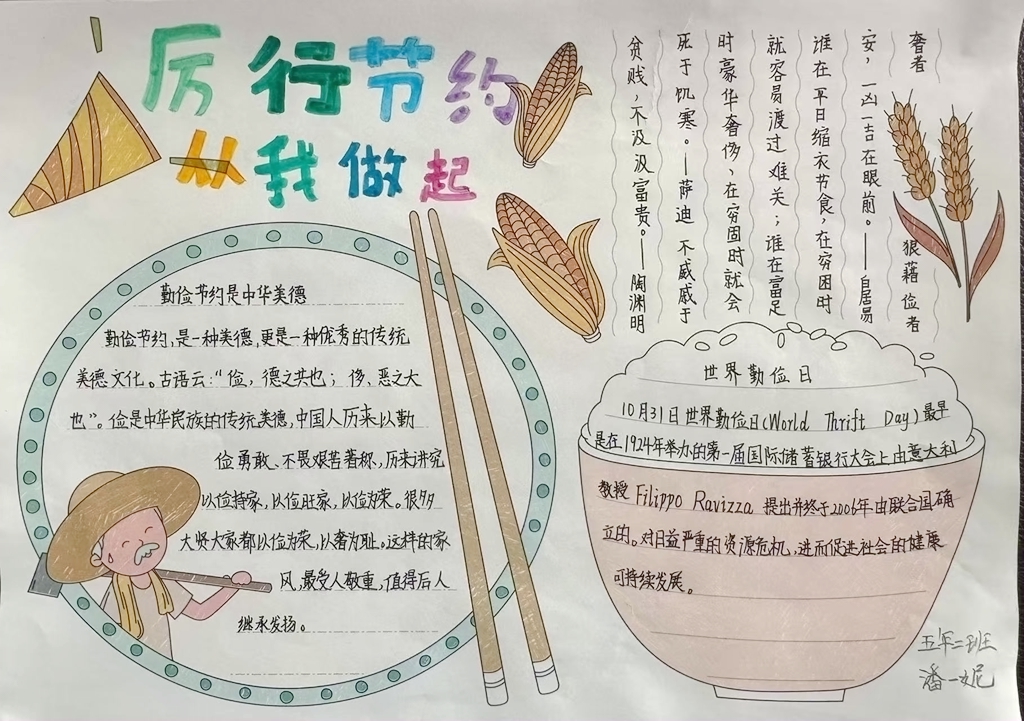 厉行节约
从我做起
奢者狼藉俭者
安，一凶一吉在眼前。——白居易
谁在平日缩衣节食，在穷困时
就容易渡过难关；谁在富足
时豪华奢侈，在穷固时就会
死于饥寒。——萨迪 不戚戚于
贫贱，不汲汲富贵。——陶渊明
勤俭节约是中华美德
勤俭节约，是一种美德，更是一种优秀的传统
美德文化。古语云："俭，德之共也；侈、恶之大
也"。俭是中华民族的传统美德，中国人历来以勤
俭勇敢、不畏艰苦著称，历来讲究
以俭持家，以俭旺家，以俭为荣。很多
大贤大家都以俭为荣，以奢为耻。这样的家
风，最受人敬重，值得后人
继承发扬。
世界勤俭日
10月31日世界勤俭日(World Thrift Day)最早
是在1924年举办的第一届国际储蓄银行大会上由意大利
教授Filippo Ravizza提出并终于2006年由联合国确
立的。对日益严重的资源危机，进而促进社会的健康
可持续发展。
五年二班
潘一妮